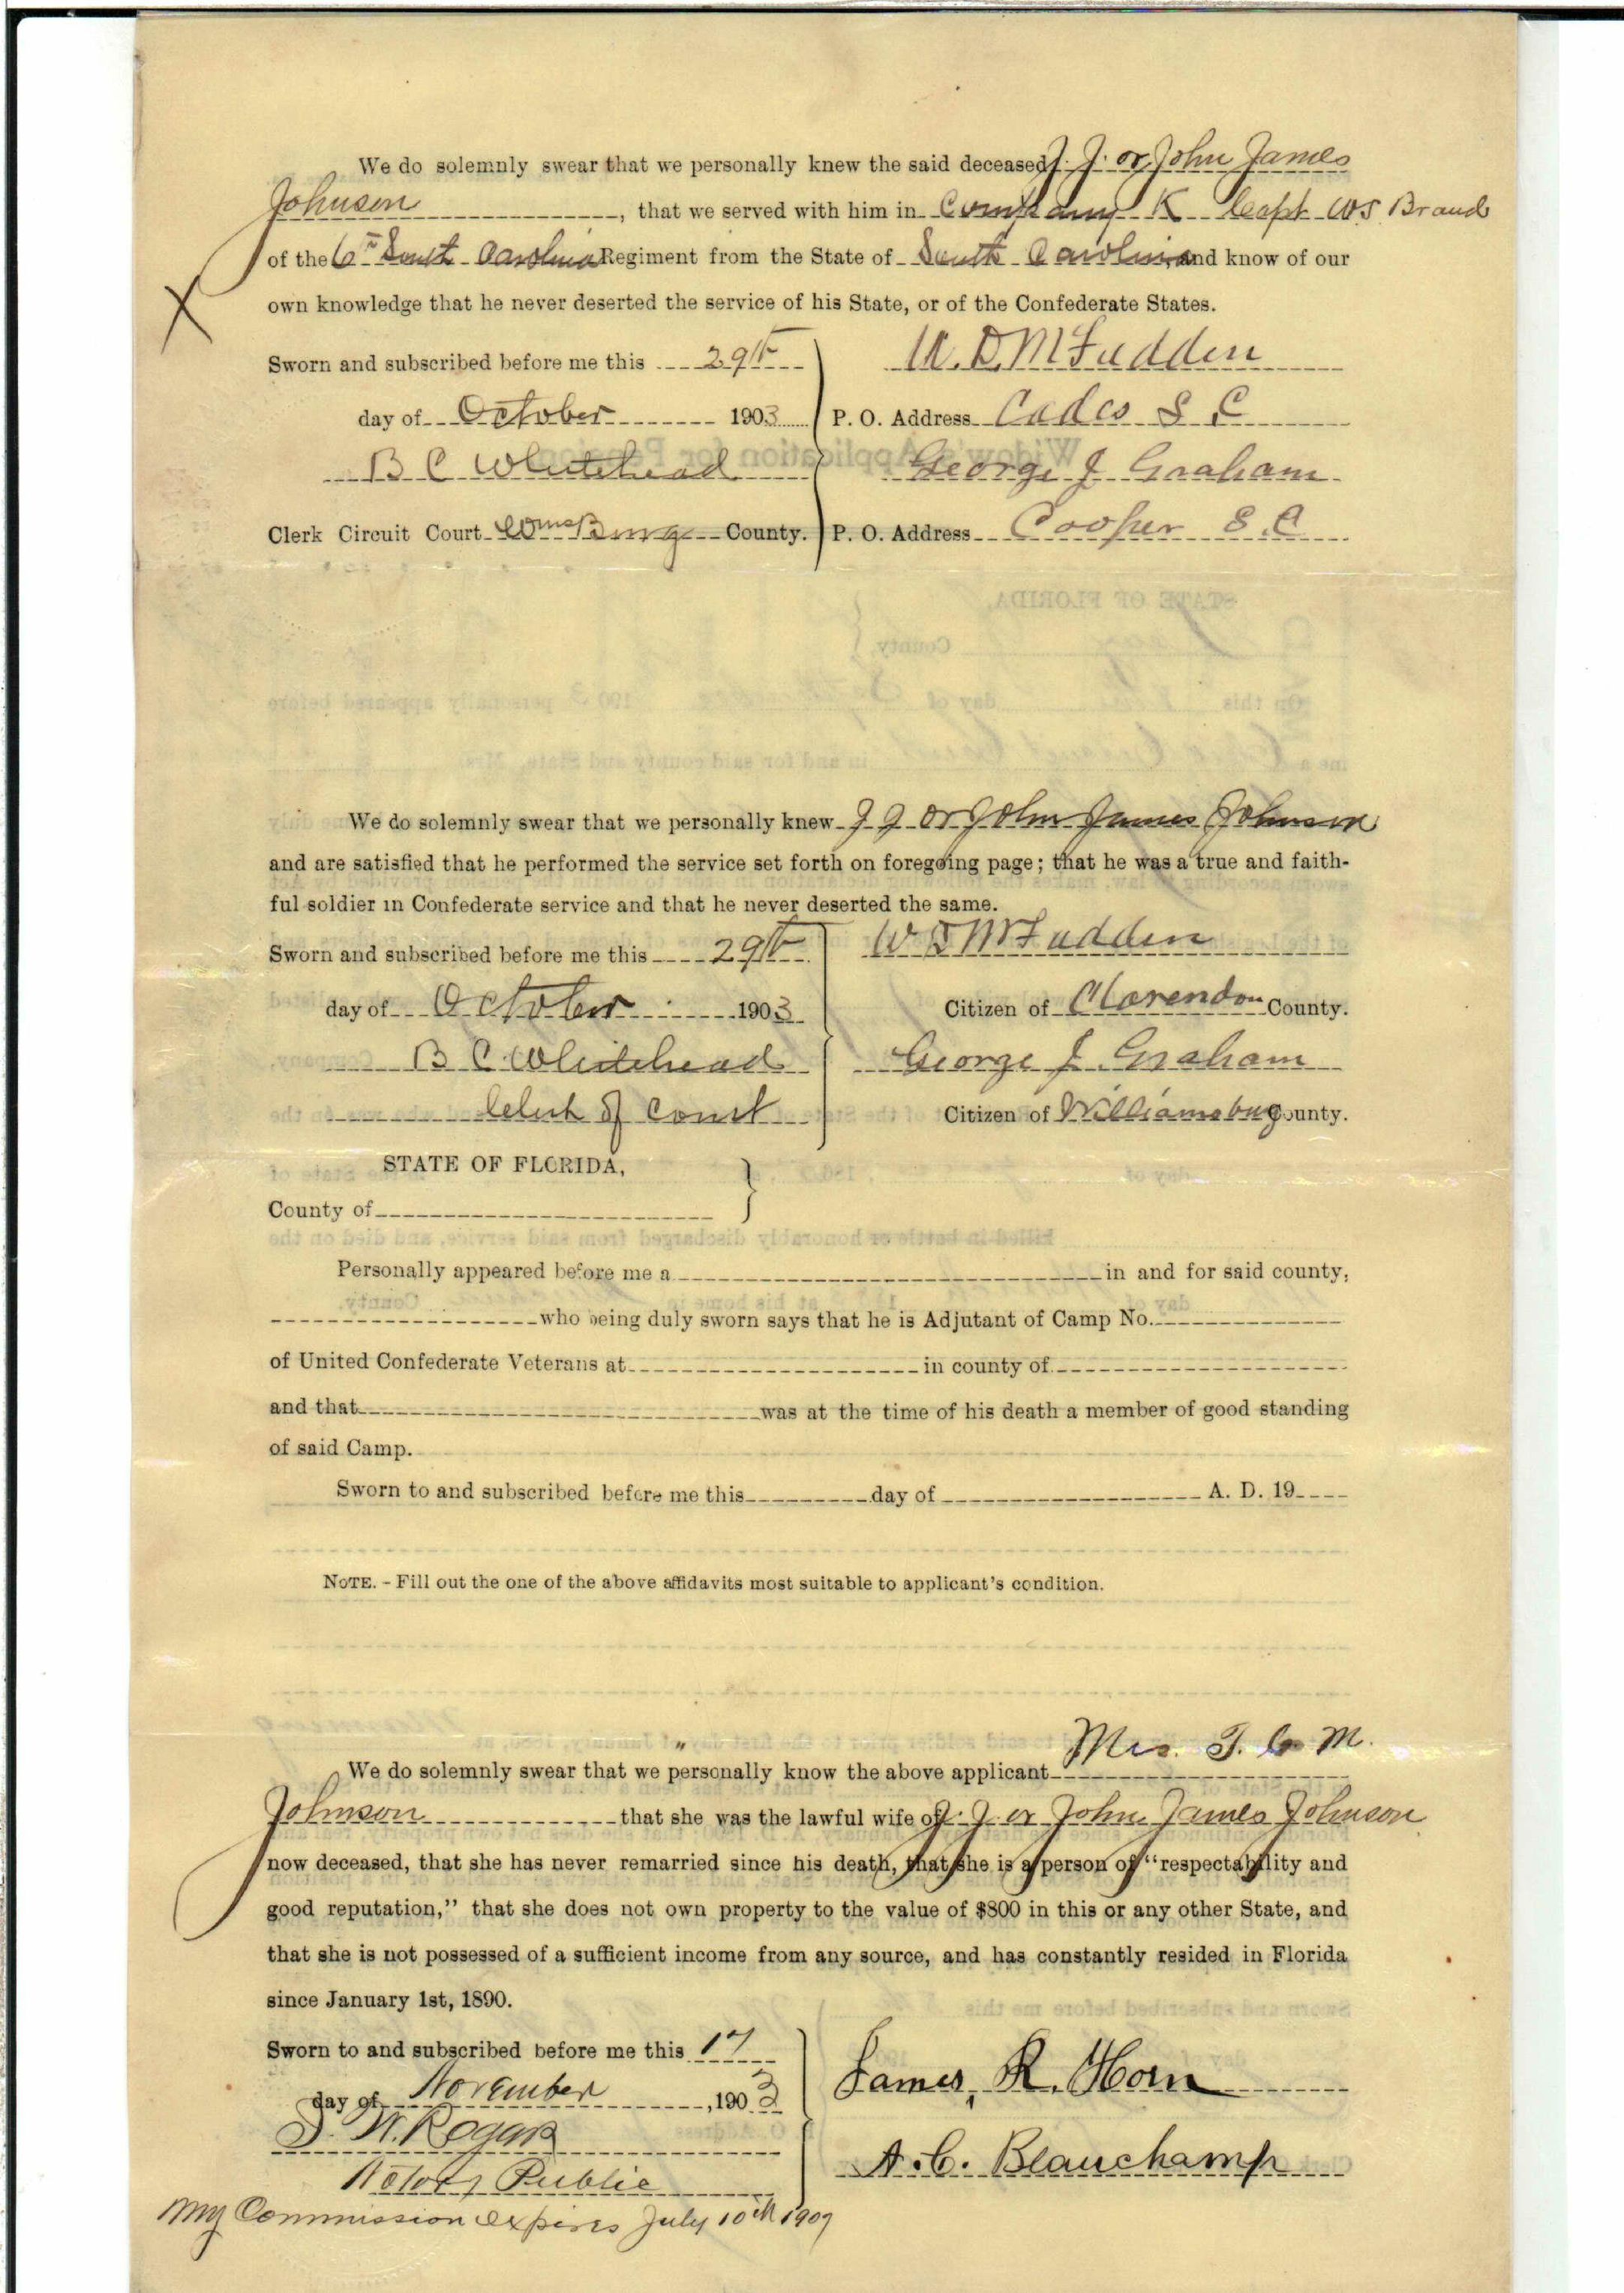 We do solemnly swear that we personally knew the said deceased J. J. or John James
Johnson, that we served with him in Company K Capt W.S. Brand
of the 6th South Carolina Regiment from the State of South Carolina and know of our
own knowledge that he never deserted the service of his State, or of the Confederate States.
X
Sworn and subscribed before me this 29th
day of October 1903
B C Whitehead
Clerk Circuit Court WmsBurg County.
W. D. McFadden
P. O. Address Cades S. C
George J Graham
P. O. Address Cooper S. C
We do solemnly swear that we personally knew J J or John James Johnson
and are satisfied that he performed the service set forth on foregoing page; that he was a true and faith-
ful soldier in Confederate service and that he never deserted the same.
Sworn and subscribed before me this 29th
day of October 1903
B C Whitehead
Clerk of Court
W D McFadden
Citizen of Clarendon County.
George J. Graham
Citizen of Williamsburg County.
STATE OF FLORIDA,
County of
Personally appeared before me a in and for said county,
who being duly sworn says that he is Adjutant of Camp No.
of United Confederate Veterans at in county of
and that was at the time of his death a member of good standing
of said Camp.
Sworn to and subscribed before me this day of A. D. 19
NOTE. - Fill out the one of the above affidavits most suitable to applicant's condition.
We do solemnly swear that we personally know the above applicant Mrs. T. C. M.
Johnson that she was the lawful wife of J. J. or John James Johnson
now deceased, that she has never remarried since his death, that she is a person of "respectability and
good reputation," that she does not own property to the value of $800 in this or any other State, and
that she is not possessed of a sufficient income from any source, and has constantly resided in Florida
since January 1st, 1890.
Sworn to and subscribed before me this 17
day of November, 1903
Notary Public
My Commission expires July 10th 1907
James, R. Horn
A. C. Beauchamp